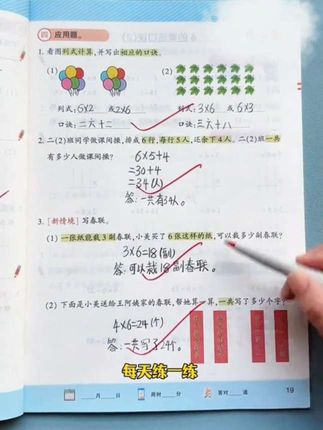 四 应用题。
1. 看图列式计算,并写出相应的口诀。
(1) (2)
列式: 6×2 或2×6 列式: 3×6 或 6×3
口诀: 二六十二 口诀: 三六十八
2. 二(2)班同学做课间操,排成6行,每行5人,还余下4人。二(2)班一共
有多少人做课间操?
6×5+4
=30+4
=34(人)
答: 一共有34人。
3. 「新情境」写春联。
(1) 一张纸能裁3副春联,小美买了6张这样的纸,可以裁多少副春联?
3×6=18(副)
答: 可以裁18副春联。
(2) 下面是小美送给王阿姨家的春联,帮她算一算,一共写了多少个字?
4×6=24(个)
答: 一共写了24个。
每天练一练
月 日 用时 分 答对 道
19